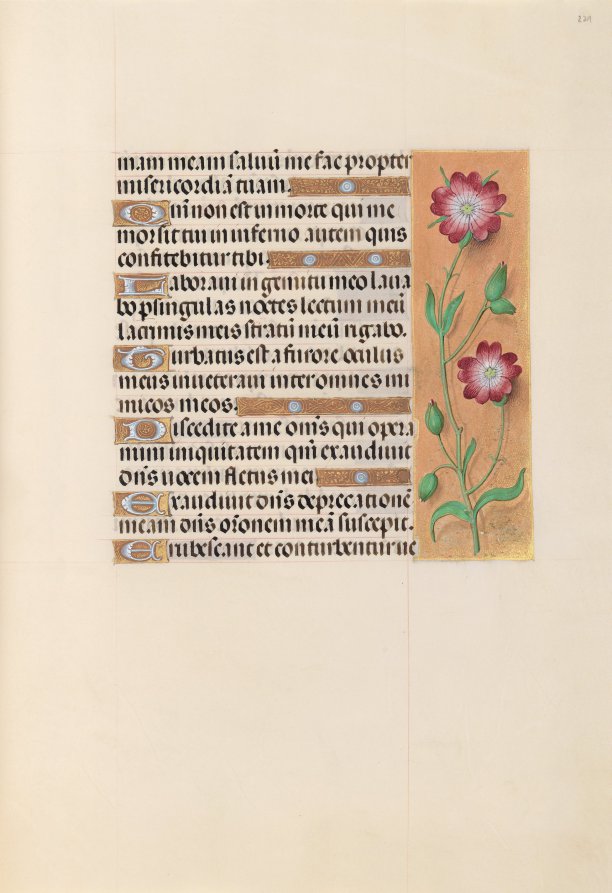 221
mam meam salvū me fac propter
misericordiā tuam.
Qm̄ non est in morte qui me
mor sit tui in inferno autem quis
confitebitur tibi.
Laboravi in gemitu meo lava
bo p singulas noctes lectum meū
lacrimis meis stratū meū rigabo.
Turbatus est a furore oculus
meus inveteravi inter omnes ini
micos meos.
Discedite a me om̄s qui opera
mini iniquitatem qm̄ exaudivit
dn̄s vocem fletus mei
Exaudivit dn̄s deprecationē
meam dn̄s or̄onem meā suscepit.
Erubescant et conturbentur ve